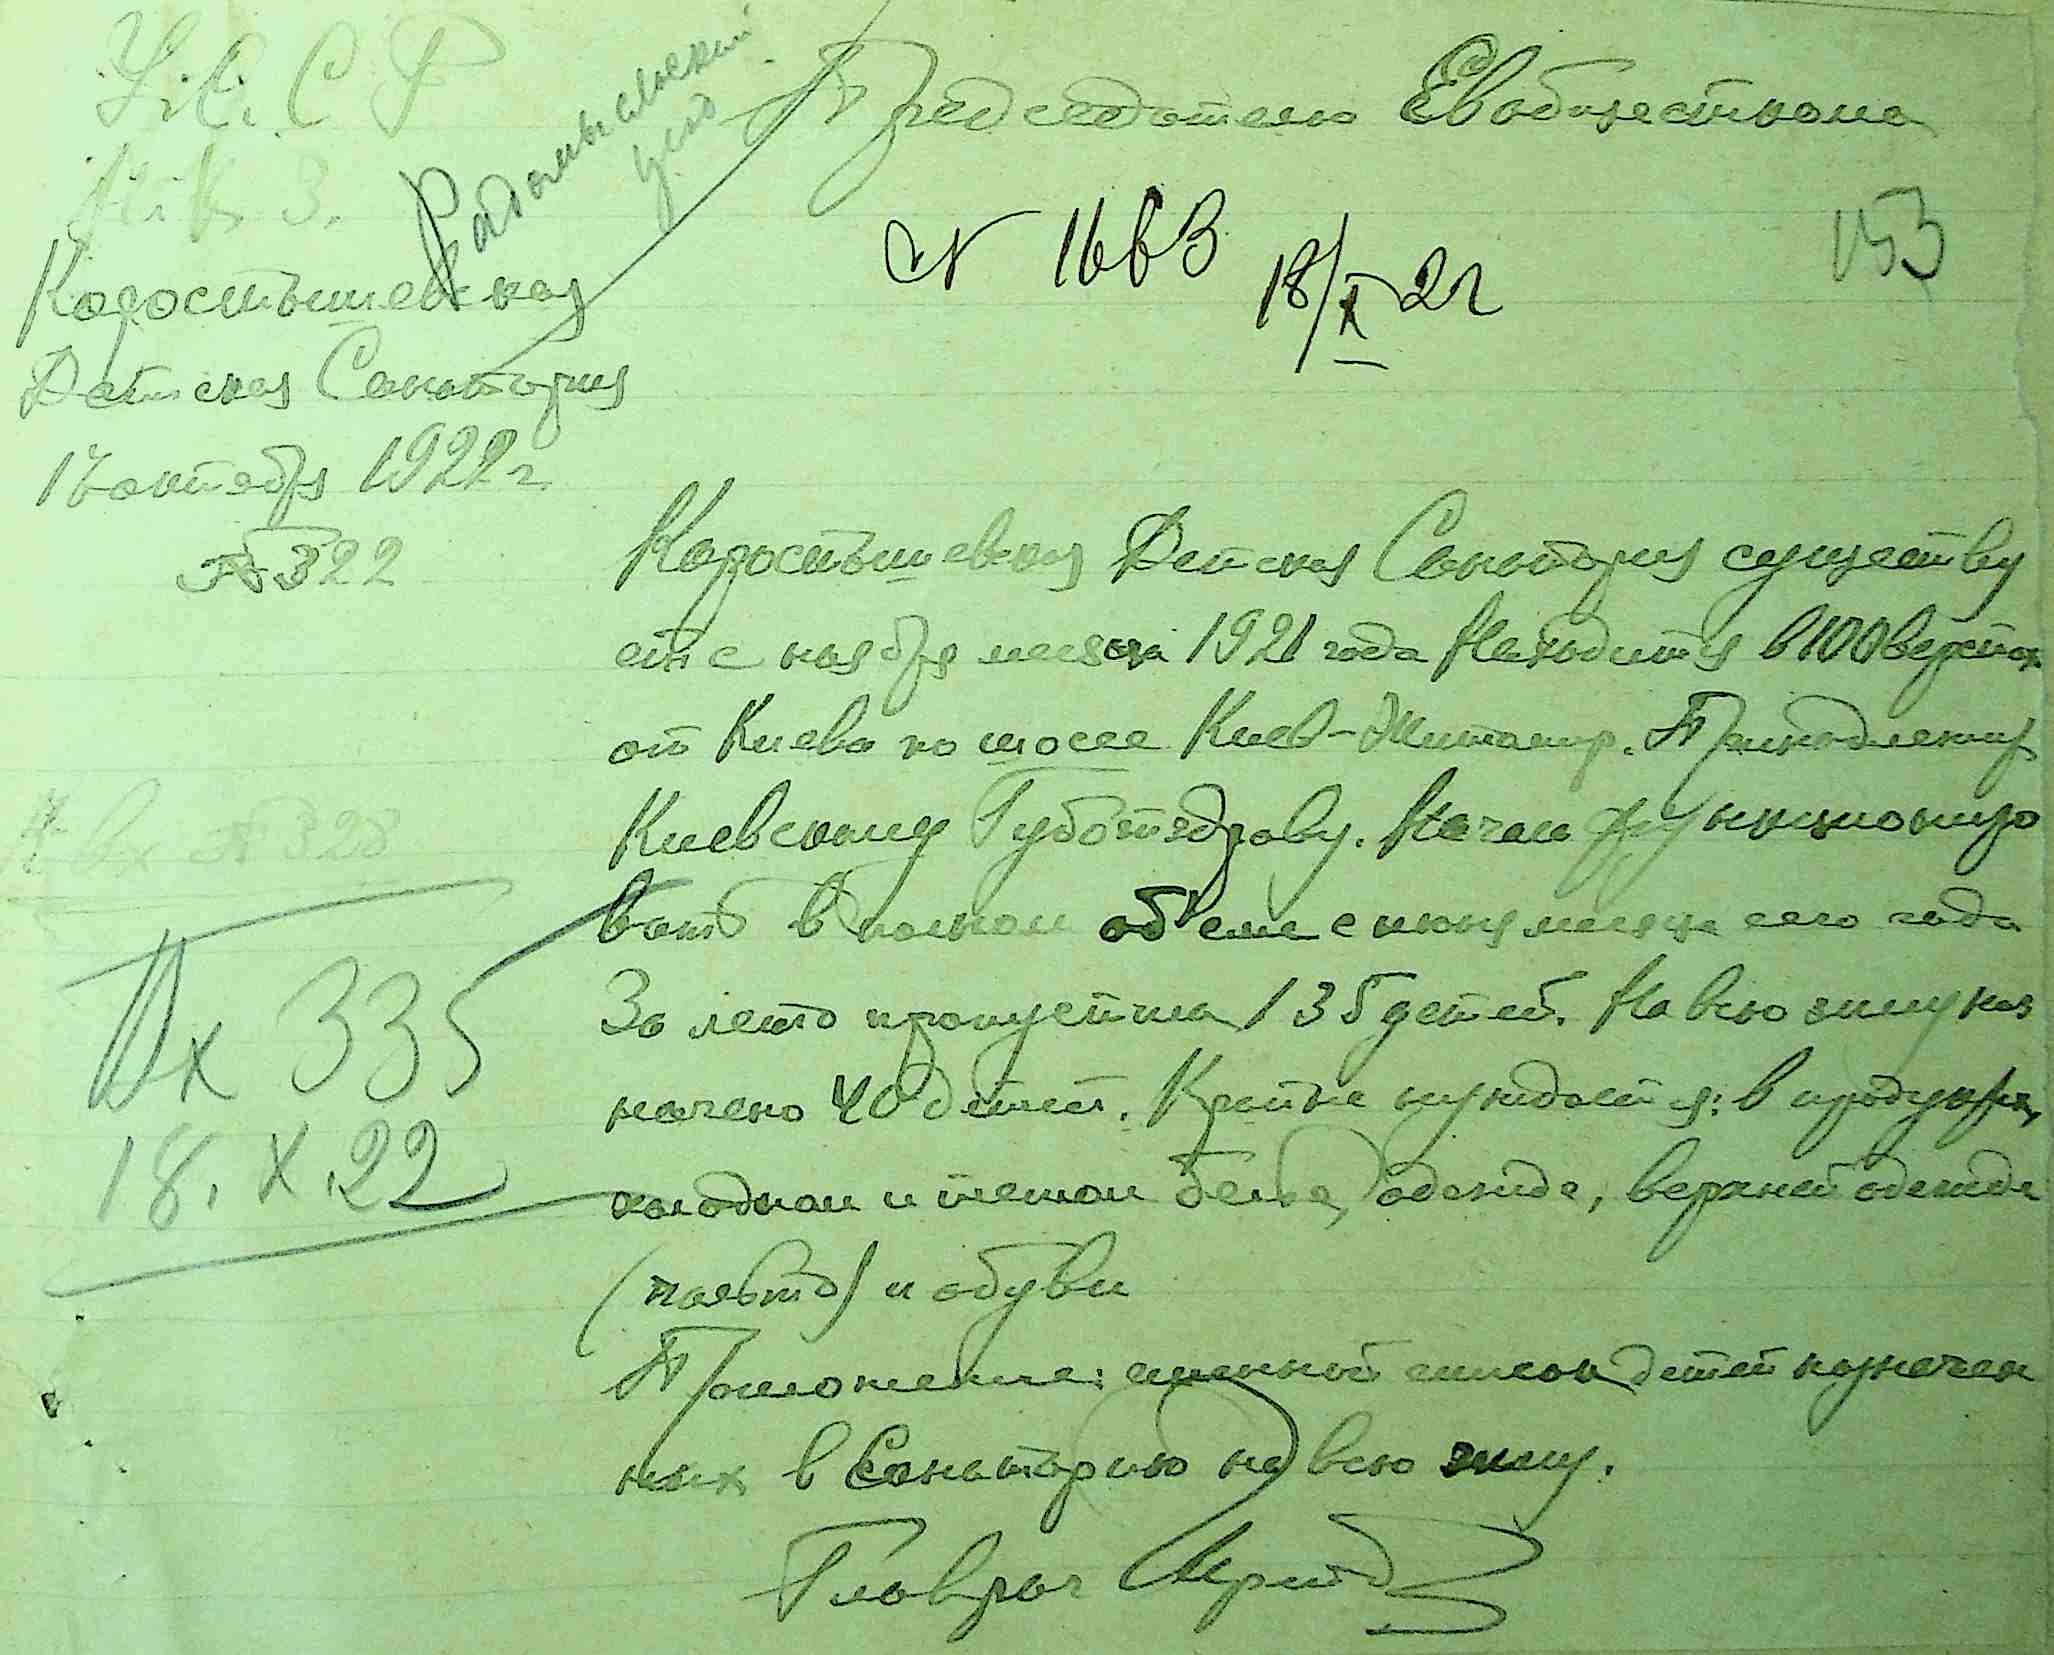 У.С.С.Р.
Н.К.З.
Радомысльский
уезд
Председателю Евобщесткома
№ 1663 18/X 22
153
Коростышевская
Детская Санатория
17 октября 1922 г.
№ 322
Коростышевская Детская Санатория существу
ет с ноября месяца 1921 года Находится в 100 верстах
от Киева по шоссе Киев-Житомир. Принадлежит
Киевскому Губотздраву. Начала функциониро
вать в полном об'еме с июня месяца сего года
За лето пропустила 135 детей. На всю зиму наз
начено 40 детей. Крайне нуждается: в продуктах,
холодном и теплом белье, одежде, верхней одежде
(пальто) и обуви
Приложение: именной список детей назначен
ных в Санаторию на всю зиму.
Главрач
Вх № 328
Вх 335
18.X.22